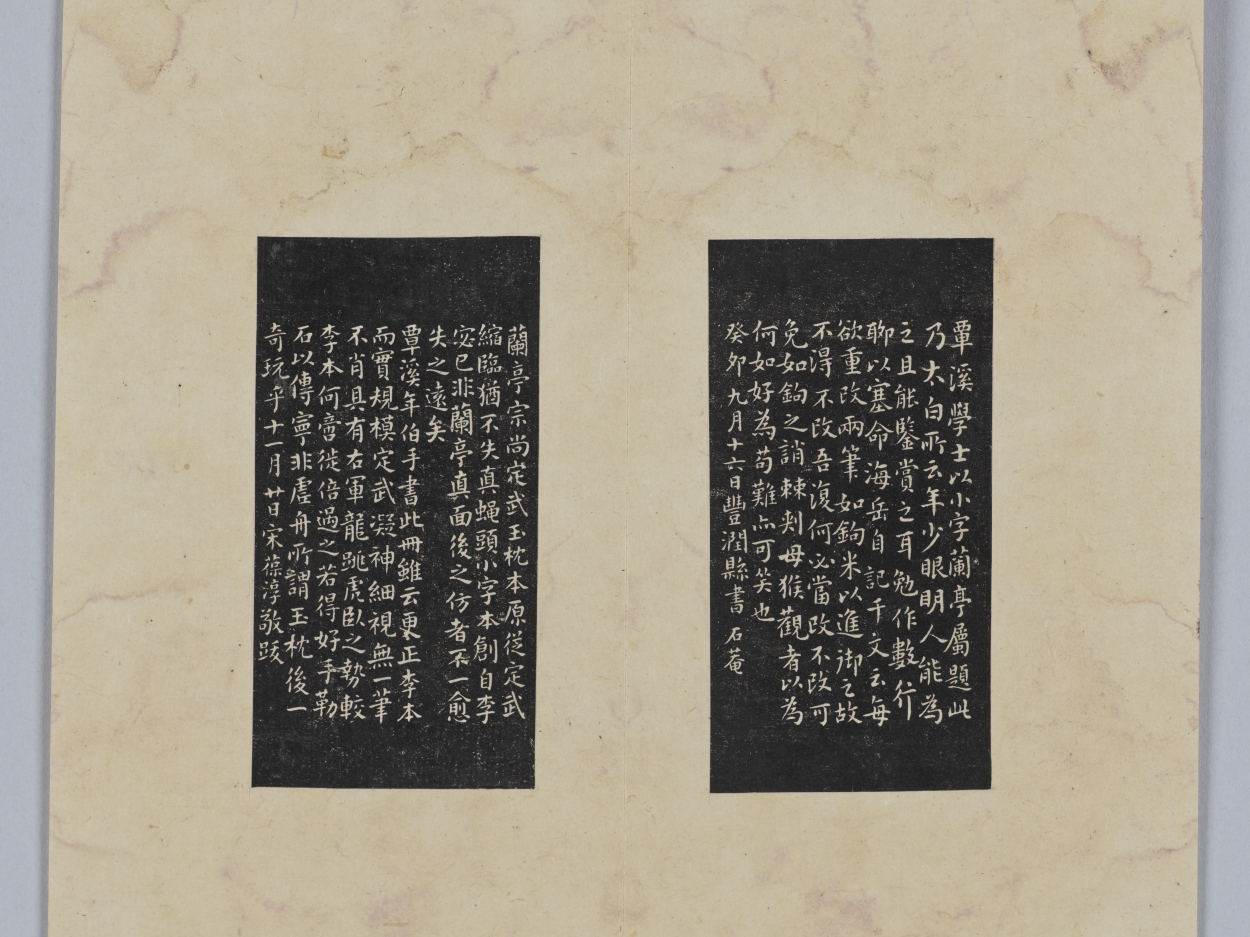 覃溪學士以小字蘭亭屬題此
乃太白所云年少眼明人能為
之且能鑒賞之耳勉作數行
聊以塞命海岳自記千文云每
欲重改兩筆如鉤米以進御之故
不得不改吾復何必當改不改可
免如鉤之誚棘刺母猴觀者以為
何如好為苟難亦可笑也
癸卯九月十六日豐潤縣書石菴
蘭亭宗尚定武玉枕本原從定武
縮臨猶不失真蝇頭小字本創自李
宓已非蘭亭真面後之仿者不一愈
失之遠矣
覃溪年伯手書此冊雖云更正李本
而實規模定武凝神細視無一筆
不肖具有右軍龍跳虎臥之勢較
李本何啻徙倍過之若得好手勒
石以傳寧非虛舟所謂玉枕後一
奇玩乎十一月廿日宋葆淳敬跋